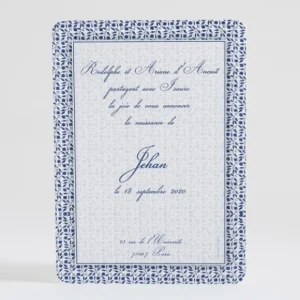 Rodolphe et Ariane d'Arcuit
partagent avec Inaure
la joie de vous annoncer
la naissance de
Jehan
le 18 septembre 2020
21 rue de l'Université
75007 Paris